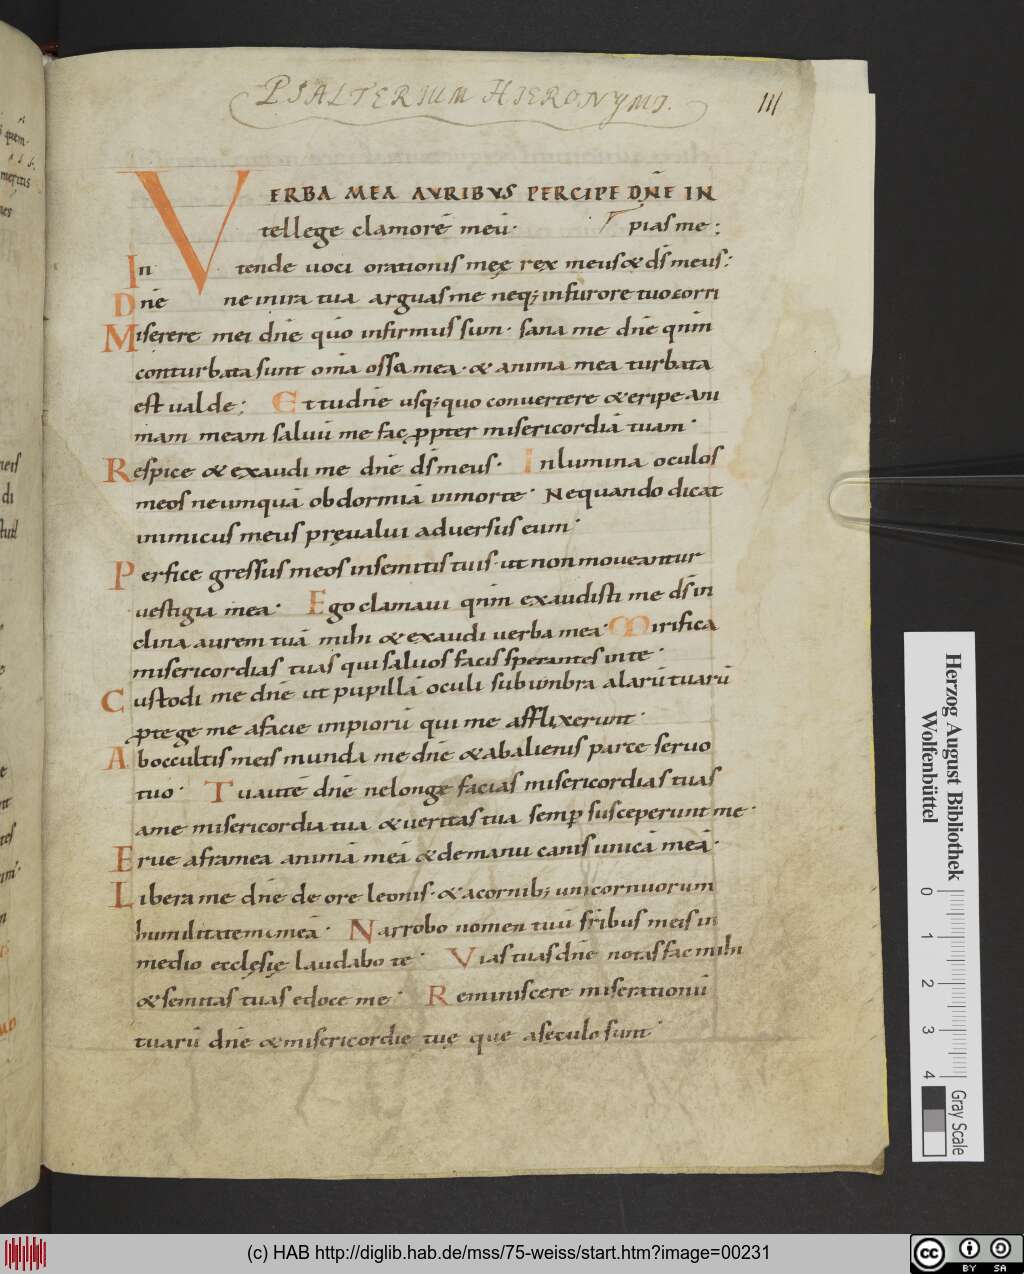 PSALTERIUM HIERONYMI.
111
VERBA MEA AVRIBVS PERCIPE DN̄E IN
tellege clamorē meū· pias me;
In tende uoci orationis meę rex meus & ds̄ meus;
Dn̄e ne in ira tua arguas me neq; in furore tuo corri
Miserere mei dn̄e qūo infirmus sum· sana me dn̄e qm̄
conturbata sunt om̄a ossa mea· & anima mea turbata
est ualde; Et tu dn̄e usq; quo conuertere & eripe ani
mam meam saluū me fac ꝓpter misericordiā tuam·
Respice & exaudi me dn̄e ds̄ meus· Inlumina oculos
meos ne umquā obdormiā in morte· Nequando dicat
inimicus meus pręualui aduersus eum·
Perfice gressus meos in semitis tuis· ut non moueantur
uestigia mea· Ego clamaui qm̄ exaudisti me ds̄ in
clina aurem tuā mihi & exaudi uerba mea· Mirifica
misericordias tuas qui saluos facis sperantes in te·
Custodi me dn̄e ut pupillā oculi sub umbra alarū tuarū
ꝓtege me a facie impiorū qui me afflixerunt·
Ab occultis meis munda me dn̄e & ab alienis parce seruo
tuo· Tu autē dn̄e ne longe facias misericordias tuas
a me misericordia tua & ueritas tua semꝑ susceperunt me·
Erue a framea animā meā & de manu canis unicā meā·
Libera me dn̄e de ore leonis· & a cornib; unicornuorum
humilitatem meā· Narrabo nomen tuū fr̄ibus meis in
medio ecclęsię laudabo te· Vias tuas dn̄e notas fac mihi
& semitas tuas edoce me· Reminiscere miserationū
tuarū dn̄e & misericordie tuę que a seculo sunt·
Herzog August Bibliothek
Wolfenbüttel
0 1 2 3 4
Gray Scale
(c) HAB http://diglib.hab.de/mss/75-weiss/start.htm?image=00231
cc BY SA